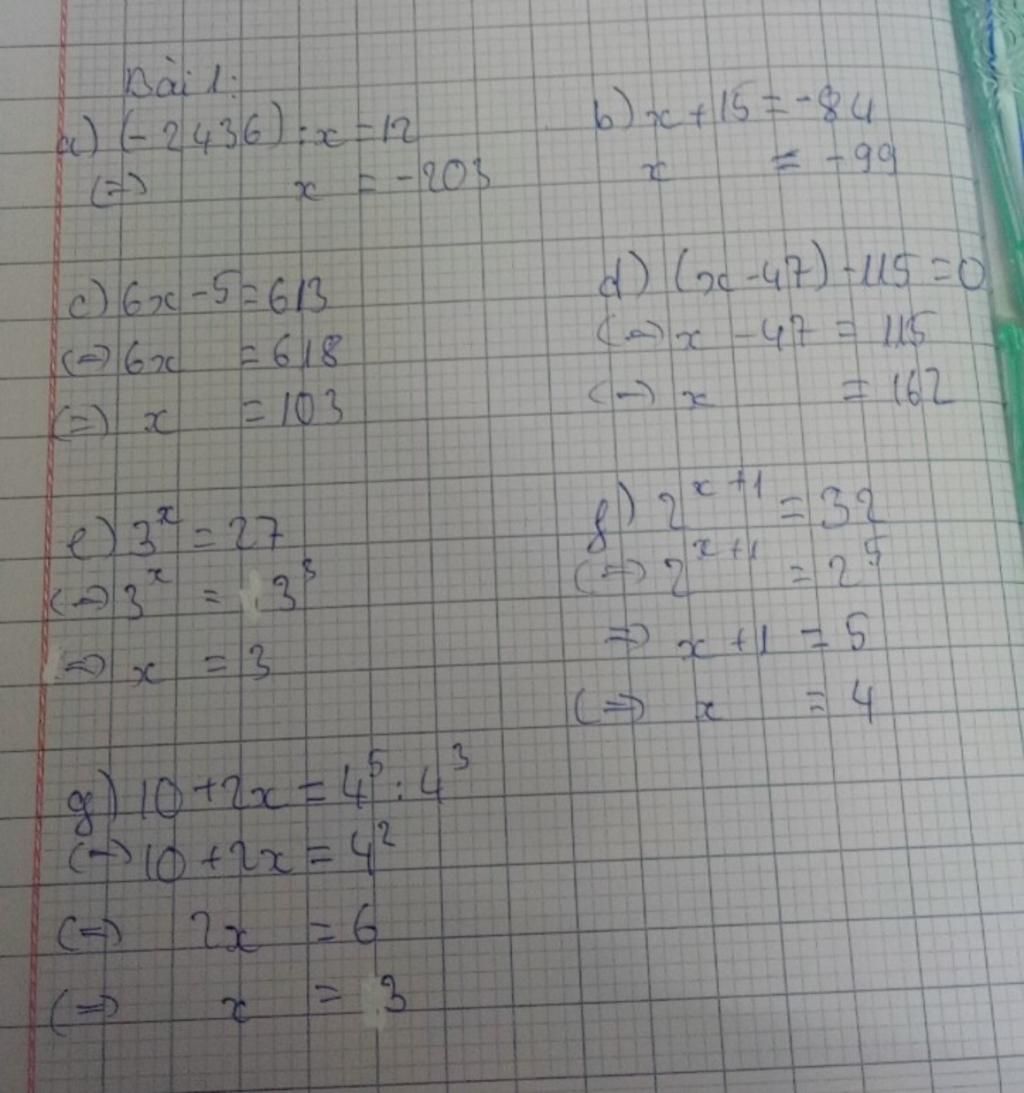 Bài 1:
a) (-2436) : x = 12
(=) x = -203
b) x + 15 = -84
x = -99
c) 6x - 5 = 613
(=) 6x = 618
(=) x = 103
d) (x - 47) - 115 = 0
(=) x - 47 = 115
(=) x = 162
e) 3^x = 27
(=) 3^x = 3^3
=> x = 3
f) 2^{x+1} = 32
(=) 2^{x+1} = 2^5
=> x + 1 = 5
(=) x = 4
g) 10 + 2x = 4^5 : 4^3
(=) 10 + 2x = 4^2
(=) 2x = 6
(=) x = 3